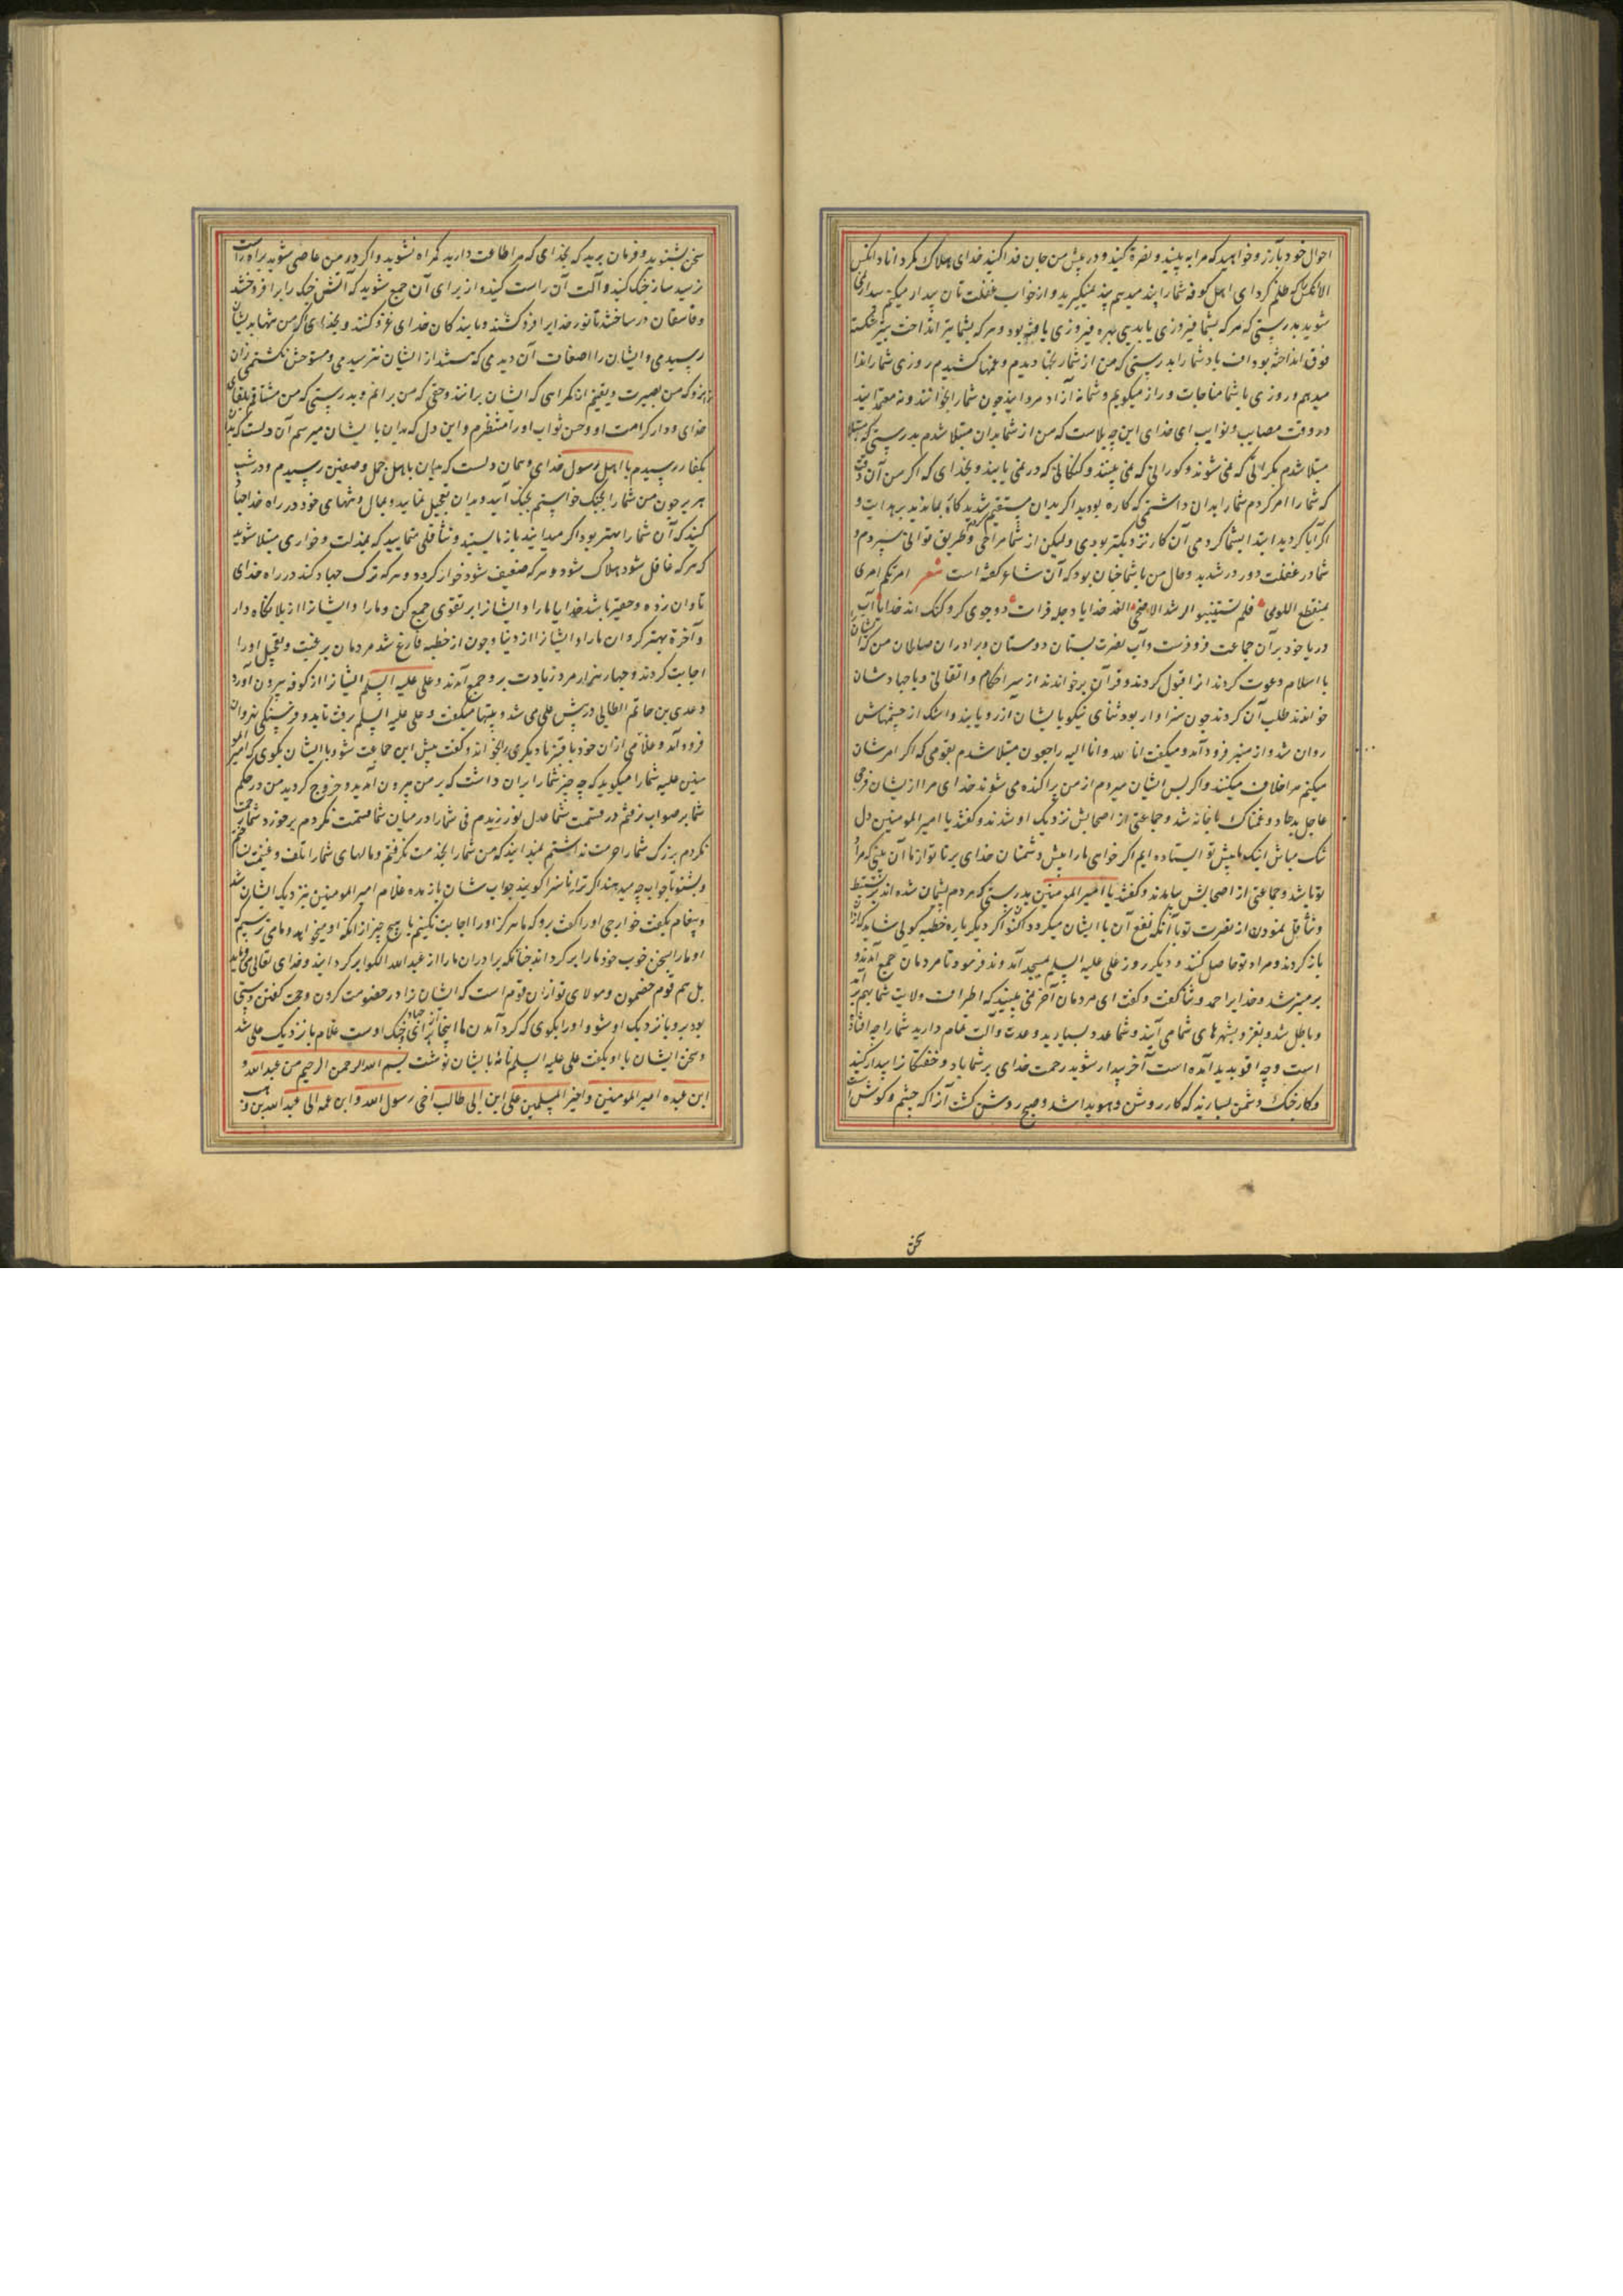 احوال خود بارز و خواهید که مرا به بینید و نصرة کنید و در پیش من جان فدا کنید خدای هلاک نکرداناد انکس
الا انکس که ظلم کرد ای اهل کوفه شما را پند میدهم پند نمیکیرید و از خواب غفلت تان بیدار میکنم بیدار نمی
شوید بدرستی که هر که بشما فیروزی یابد بی بهره فیروزی یافته بود و هر که بشما تیر انداخت بتیر شکسته
فوق انداخته بود اف باد شما را بدرستی که من از شما رنجها دیدم و غمها کشیدم روزی شما را ندا
میدهم و روزی با شما مناجات و راز میکویم و شما نه آزاد مردانید چون شما را بخوانند و نه معتمدانید
در وقت مصایب و نوایب ای خدای این چه بلاست که من از شما بدان مبتلا شدم بدرستی که مبتلا
مبتلا شدم بکرانی که نمی شنوند و کورانی که نمی بینند و کنکانی که در نمی یابند و بخدای که اگر من آن وقت
که شما را امر کردم شما را بدان داشتمی که کاره بودید اکر بدان مستقیم شدید کاه بماندید بر هدایت و
اکر ابا کردید ابتدا بشما کردمی آن کار نزدیکتر بودی و لیکن از شما مراخی و طریق توانی سپردم و
شما در غفلت دور در شدید و حال من با شما چنان بود که آن شاعر کفته است شعر امرتکم امری
بمنقطع اللوی فلم تستبینوا الرشد الا ضحی الغد خدایا دجله فرات دو جوی کر و کنک اند خدایا آب
دریا خود بر آن جماعت فرو فرست و آب نصرت بستان دوستان و برادران صالحان من که ایشان
با اسلام دعوت کردند انرا قبول کردند و قرآن برخواندند از سر احکام و اتقانی و با جهاد شان
خواندند طلب آن کردند چون سزاوار بود ثنای نیکو با یشان ازرو یابند و اشک از چشمهاش
روان شد و از منبر فرود آمد و میکفت انا لله و انا الیه راجعون مبتلا شدم بقومی که اکر امر شان
میکنم مرا خلاف میکنند و اکر پس ایشان میروم از من پراکنده می شوند خدای مرا از یشان فرجی
عاجل بدهاد و غمناک با خانه شد و جماعتی از اصحابش نزدیک او شدند و کفتند یا امیر المومنین دل
تنک مباش اینک ما پیش تو ایستاده ایم اکر خواهی ما را پیش دشمنان خدای بر تا تو از ما آن بینی که مراد
تو باشد و جماعتی از اصحابش بیامدند و کفتند یا امیر المومنین بدرستی که مردم پشیمان شده اند بر تثبیط
و تثاقل نمودن از نصرت تو با آنکه نفع آن با ایشان میکردد اکنون اکر دیکر باره خطبه کویی شاید که از آن
باز کردند و مراد تو حاصل کنند و دیکر روز علی علیه السلم بمسجد آمد و ندا فرمود تا مردمان جمع آمدند و
بر منبر شد و خدایرا حمد و ثنا کفت و کفت ای مردمان آخر نمی بینید که اطراف ولایت شما بهم بر آمد
و باطل شد و بغزو بشهرهای شما می آیند و شما عدد بسیارید و عدت و آلت عام دارید شما را چه افتاده
است و چه اقو پدید آمده است آخر بیدار شوید رحمت خدای بر شما باد و خفتکانرا بیدار کنید
و کار جنک دشمن بسازید که کار روشن و هویدا شد و صبح روشن کشت آنرا که چشم و کوش است
سخن
سخن بشنوید و فرمان برید که بخدای که مرا طاعت دارید کمراه نشوید و اکر در من عاصی شوید براه راست
نرسید ساز جنک کنید و آلت آن راست کنید و از برای آن جمع شوید که آتش جنک را برافروختند
و فاسقان در ساختند تا نور خدایرا فرو کشند و با بندکان خدای غزو کنند و بخدای که من تنها بدیشان
رسیدمی و ایشان را اضعاف آن دیدمی که هستند از ایشان نترسیدمی و مستوحش نکشتمی زان
بهر که من بصیرت و یقینم از کمراهی که ایشان برانند و حقی که من برانم و بدرستی که من مشتاق بلقای
خدای و دار کرامت او و حسن ثواب او را منتظرم و این دل که بدان با ایشان میرسم آن دلست که بدان
بکفار رسیدم با اهل رسول خدای و همان دلست که بدان باهل جمل و صفین رسیدم و در شب
هریر چون من شما را بجنک خواستم بجنک آیید و بدان تعجیل نمایید و بمال و تنهای خود در راه خدا جهاد
کنید که آن شما را بهتر بود اکر میدانید باز مایستید و تثاقلی منمایید که بمذلت و خواری مبتلا شوید
که هر که غافل شود هلاک شود و هر که ضعیف شود خوار کردد و هر که ترک جهاد کند در راه خدای
تاوان زده و حقیر باشد خدایا ما را و ایشانرا بر تقوی جمع کن و ما را و ایشانرا از بلا نکاه دار
و آخرة بهتر کردان ما را و ایشانرا از دنیا و چون از خطبه فارغ شد مردمان برغبت و تعجیل او را
اجابت کردند و چهار هزار مرد زیادت برو جمع آمدند و علی علیه السلم ایشانرا از کوفه بیرون آورد
و عدی بن حاتم الطایی در پیش علی می شد و بیتها میکفت و علی علیه السلم برفت تا بدو فرسنکی نهروان
فرود آمد و غلامی از آن خود با قنبر نا دیکری را بخواند و کفت پیش این جماعت شو و با ایشان بکوی که امیر المو
منین علیه شما را میکوید که چه چیز شما را بران داشت که بر من بیرون آمدید و خروج کردید من در حکم
شما بر صواب نرفتم در قسمت شما عدل نورزیدم فی شما را در میان شما قسمت نکردم بر خورد شما رحمت
نکردم بزرک شما را حرمت نداشتم نمیدانید که من شما را بخدمت نکرفتم و مالهای شما را تلف و غنیمت نساختم
و بشنو تا جواب چه میدهند اکر ترا نا سزا کویند جواب شان باز مده غلام امیر المومنین نزدیک ایشان شد
و پیغام بکفت خوارج او را کفت برو که ما هرکز او را اجابت نکنیم با هیچ چیز از انکه او میخواهد و ما می ترسیم که
او ما را بسخن خوب خود ما را بر کرداند چنانکه برادران ما را از عبد الله الکوا بر کردانید و خدای تعالی می فرماید
بل هم قوم خصمون و مولای تو از آن قوم است که ایشانرا در خصومت کردن و حجت کفتن دستی
بود برو با نزدیک او شو و او را بکوی که کرد آمدن ما اینجا از برای جهاد و جنک اوست غلام با نزدیک علی شد
و سخن ایشان با او بکفت علی علیه السلم نامۀ بایشان نوشت بسم الله الرحمن الرحیم من عبد الله و
ابن عبده امیر المومنین و اخیر المسلمین علی ابن ابی طالب اخی رسول الله و ابن عمه الی عبد الله بن وهب